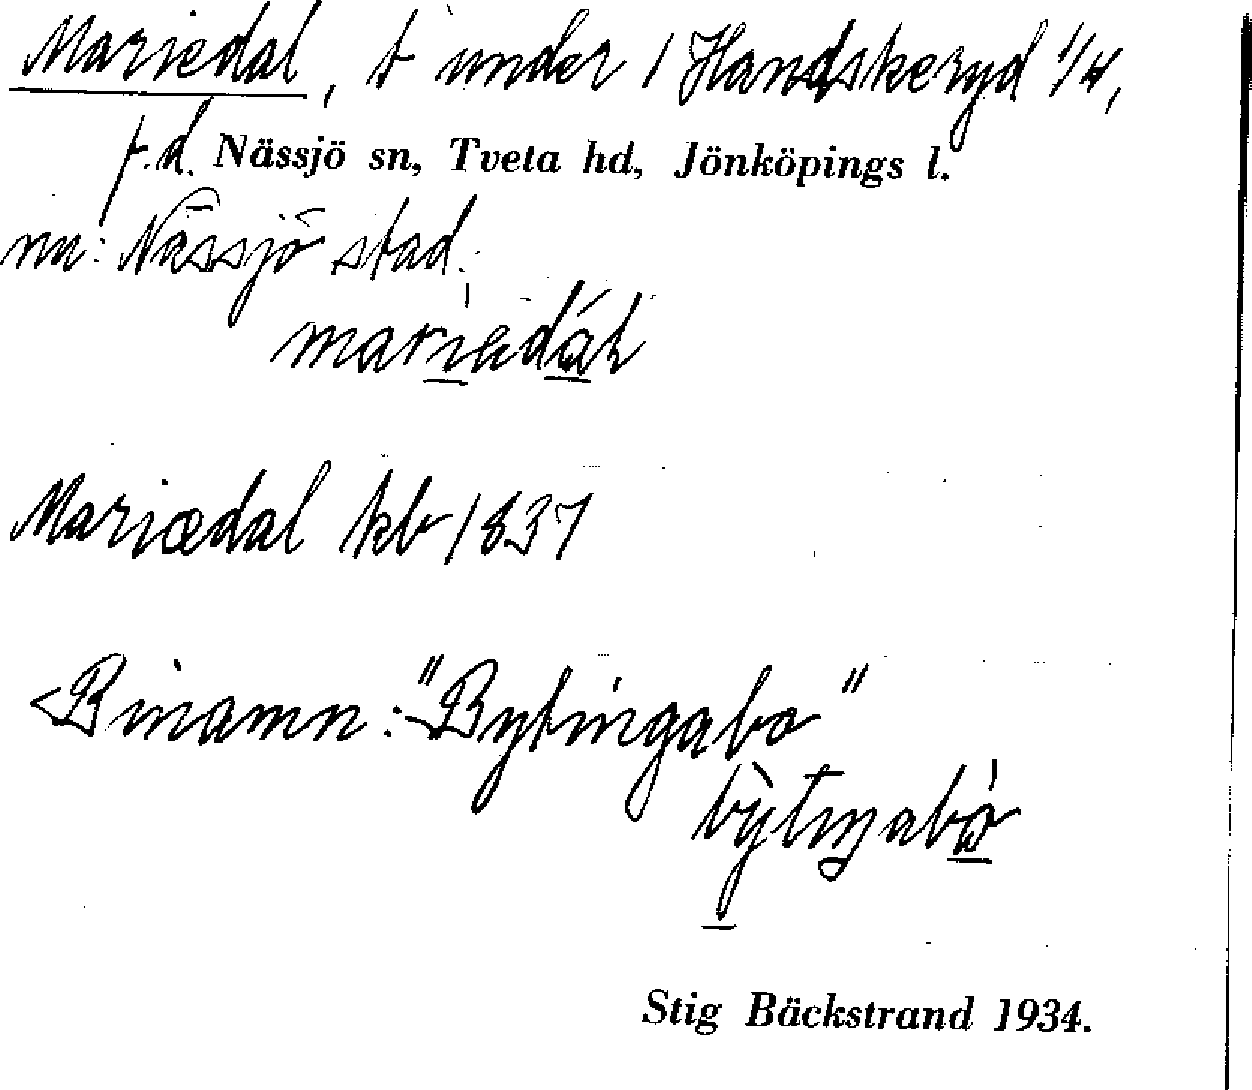 Mariedal, t under 1 Handskeryd 1/4,
f.d. Nässjö sn, Tveta hd, Jönköpings l.
nu: Nässjö stad.
Mariædal kb 1837
Binamn: "Bytingabo"
Stig Bäckstrand 1934.